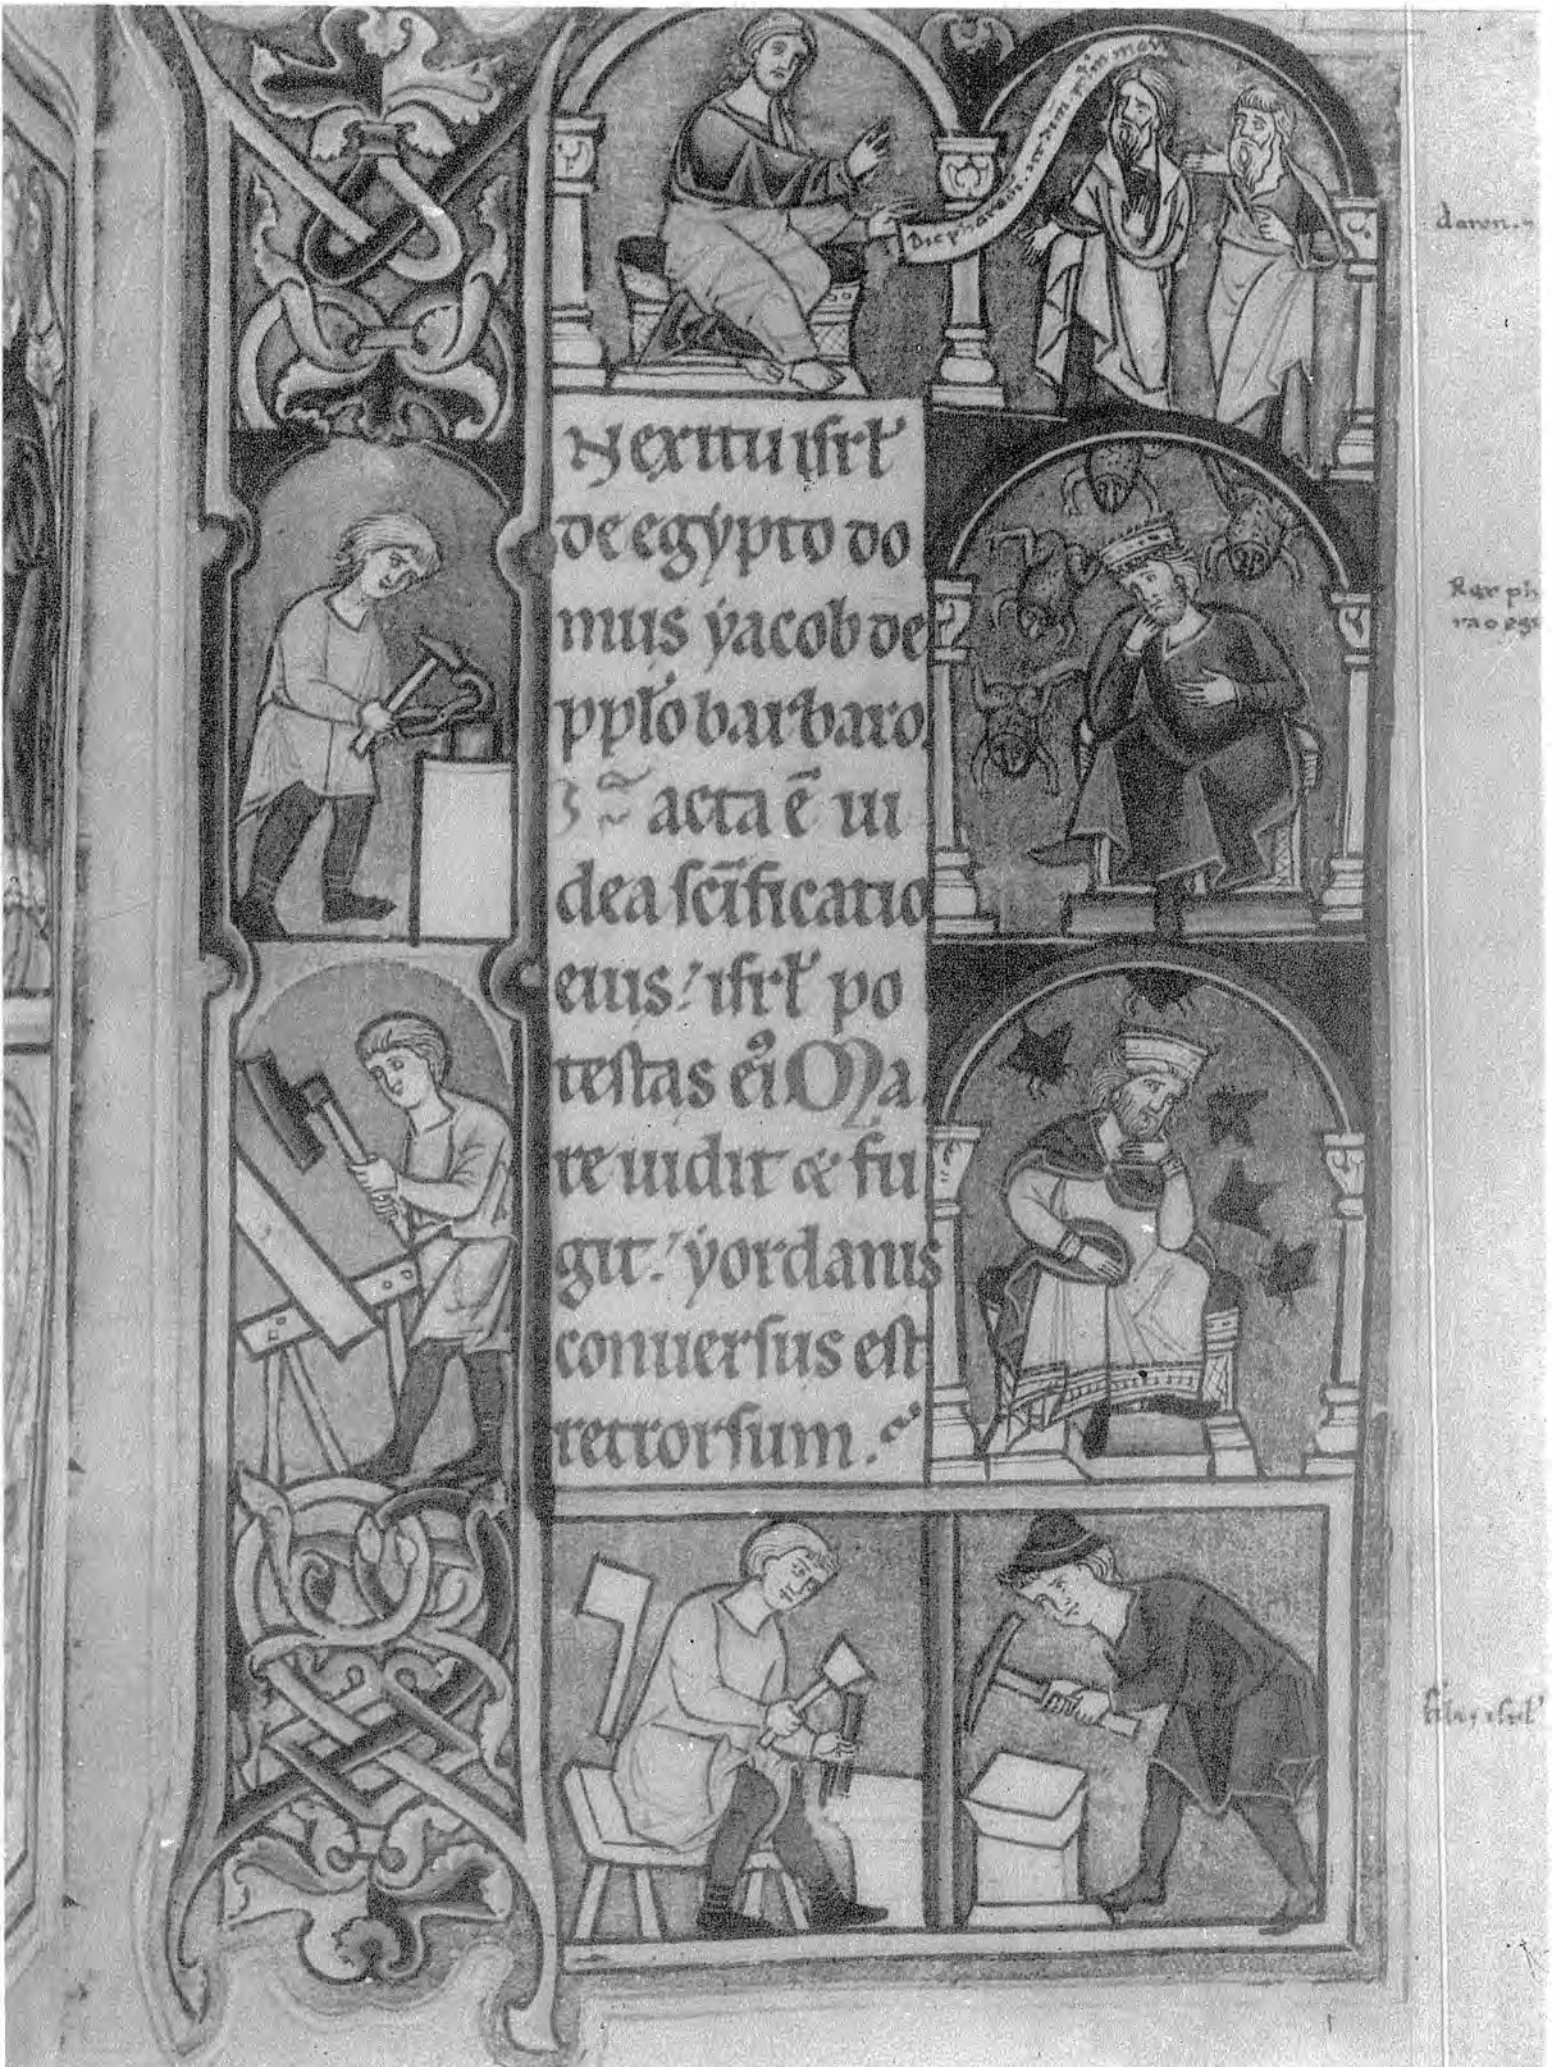 Dic pharaoni
N exitu isrl'
de egẏpto do
mus ẏacob de
pplo barbaro.
acta ē iu
dea scīficatio
eius: isrl' po
testas ei᷒ Ma
re uidit & fu
git: ẏordanis
conuersus est
retrorsum.
aaron
Rex pha
rao egi
filii isrl'